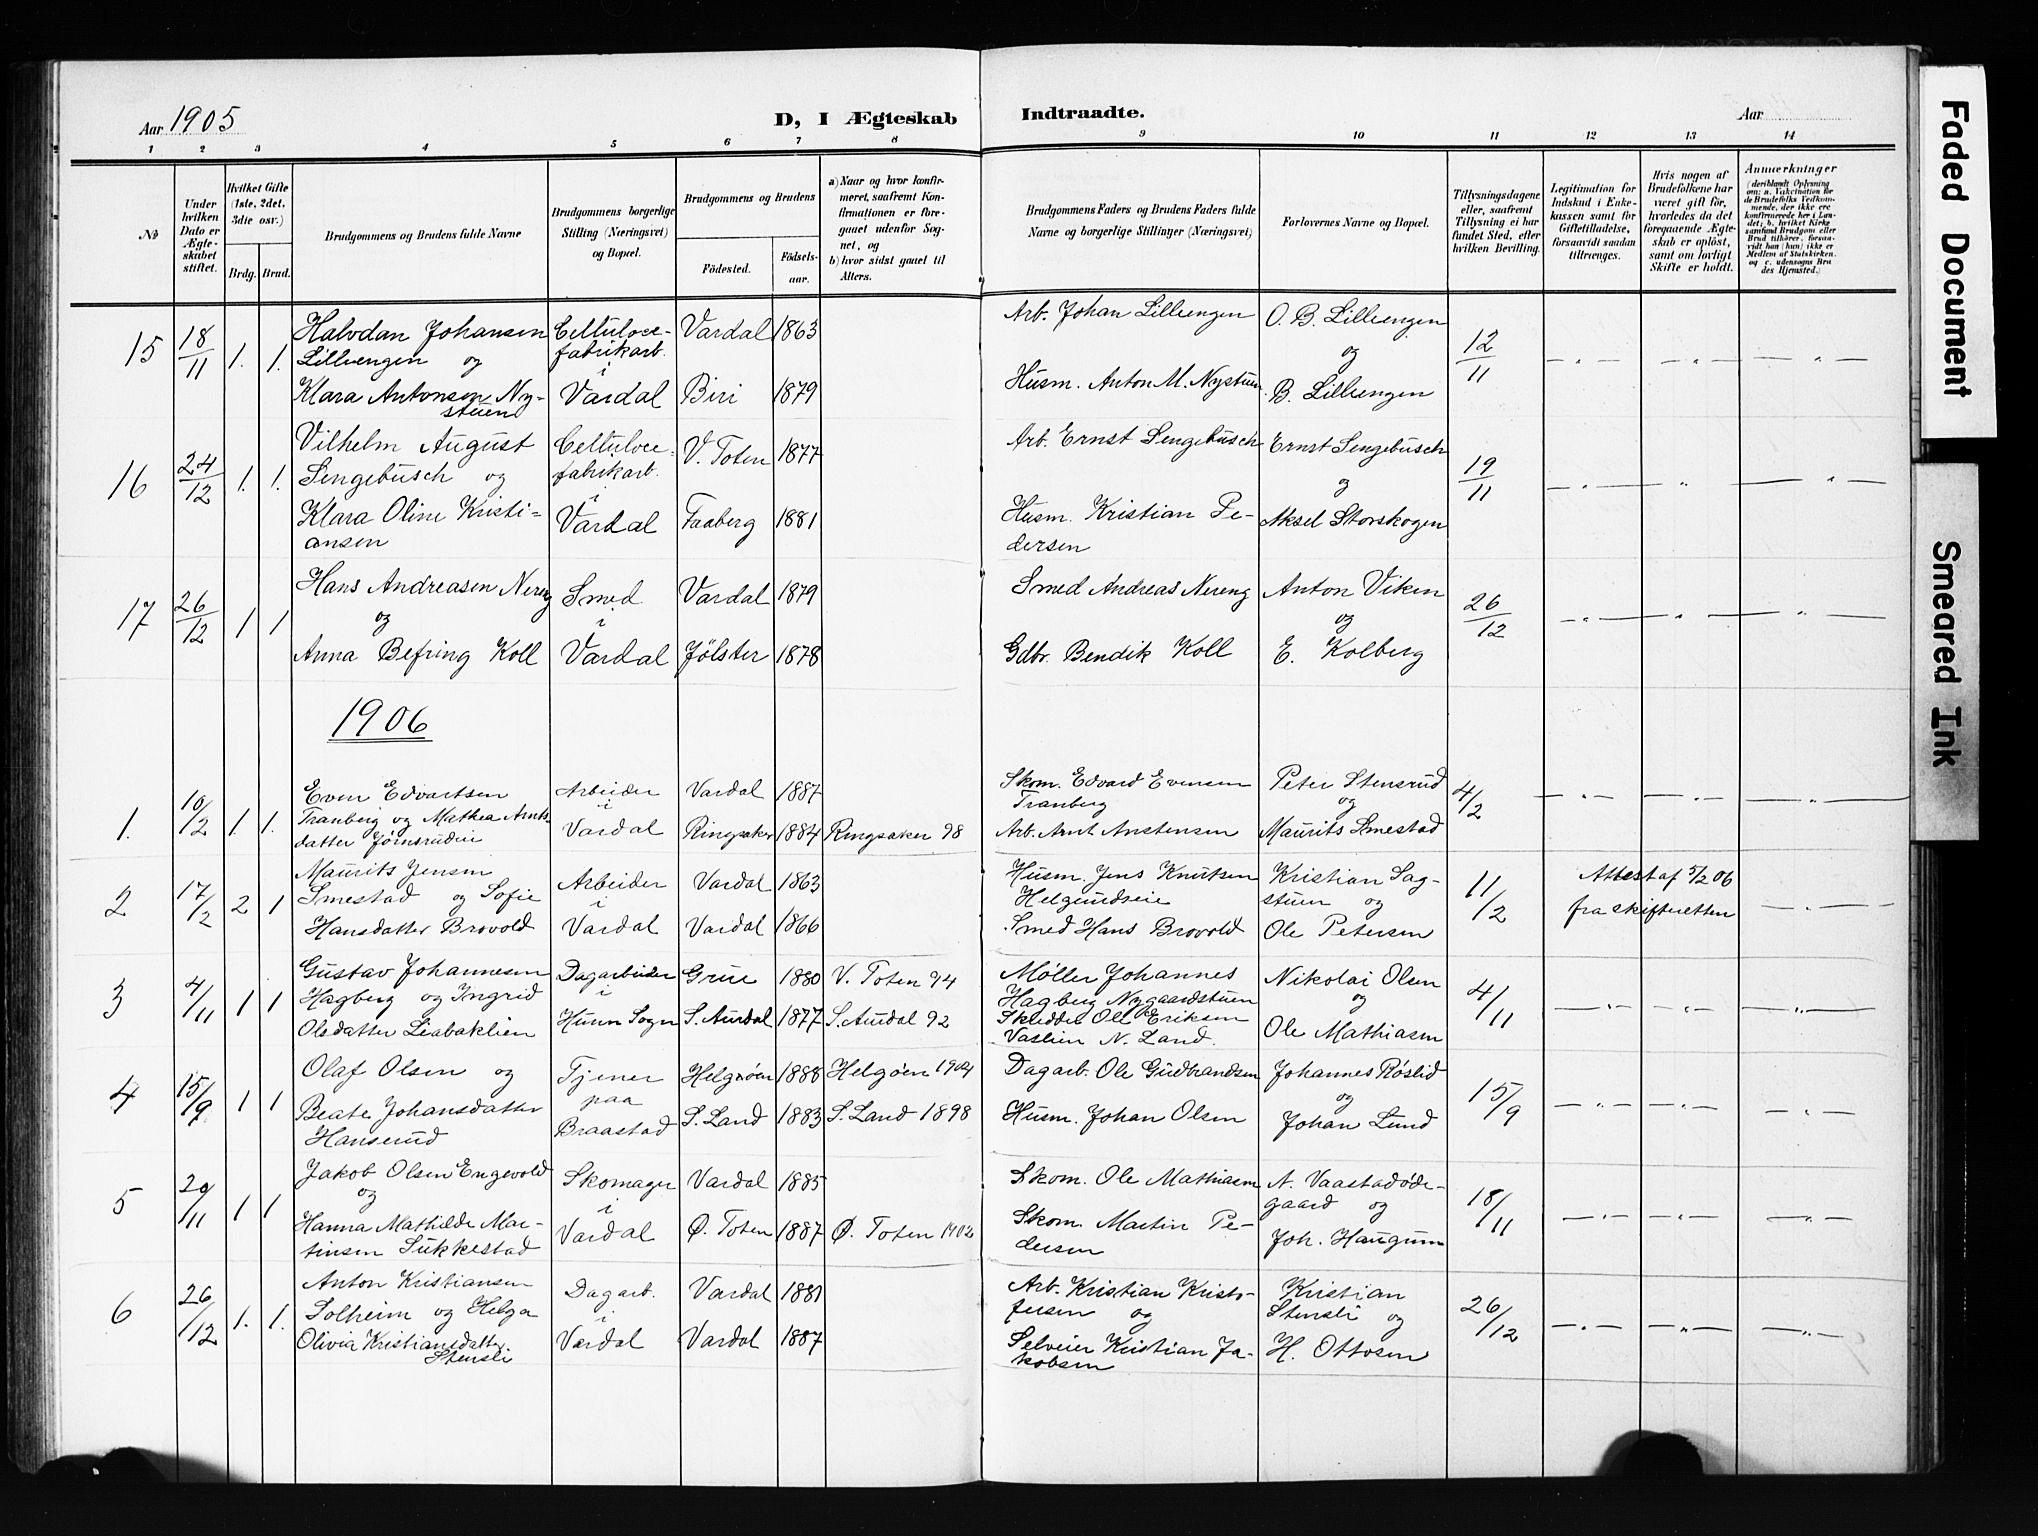 Aar 1905
D, I Ægteskab Indtraadte.
Aar
1 2 3 4 5 6 7 8 9 10 11 12 13 14
No
Under hvilken Dato er Ægteskabet stiftet.
Hvilket Gifte (1ste, 2det, 3die osv.)
Brdg. Brud.
Brudgommens og Brudens fulde Navne
Brudgommens borgerlige Stilling (Næringsvei) og Bopæl.
Brudgommens og Brudens
Födested.
Födsels-aar.
a) Naar og hvor konfirmeret, saafremt Konfirmationen er foregaaet udenfor Sognet, og
b) hvor sidst gaaet til Alters.
Brudgommens Faders og Brudens Faders fulde Navne og borgerlige Stillinger (Næringsvei)
Forlovernes Navne og Bopæl.
Tillysningsdagene eller, saafremt Tillysning ei har fundet Sted, efter hvilken Bevilling.
Legitimation for Indskud i Enkekassen samt for Giftetilladelse, forsaavidt saadan tiltrænges.
Hvis nogen af Brudefolkene har været gift før, hvorledes da det foregaaende Ægteskab er oplöst, samt om lovligt Skifte er holdt.
Anmærkninger
(deriblandt Oplysning om: a. Vakcination for de Brudefolks Vedkommende, der ikke ere konfirmerede her i Landet; b. hvilket Kirkesamfund Brudgom eller Brud tilhörer, forsaavidt han (hun) ikke er Medlem af Statskirken, og c. udensogns Brudes Hjemsted.)
15 18/11 1. 1. Halvdan Johansen Celluloce- Vardal 1863 Arb. Johan Lilleengen O. B. Lilleengen 12/11
Lilleengen og fabrikarb. og
i
Klara Antonsen Ny- Vardal Biri 1879 Husm. Anton M. Nystuen B. Lilleengen
stuen
16 24/12 1. 1. Vilhelm August Celluloce- V. Toten 1877 Arb. Ernst Sengebusch Ernst Sengebusch 19/11
Sengebusch og fabrikarb. og
i
Klara Oline Kristi- Vardal Faaberg 1881 Husm. Kristian Pe- Aksel Storskogen
ansen dersen
17 26/12 1 1 Hans Andreasen Nereng Smed Vardal 1879 Smed Andreas Nereng Anton Viken 26/12
og i og
Anna Befring Koll Vardal Jølster 1878 Gdbr. Bendik Koll E. Kolberg
1906
1. 10/2 1. 1. Even Edvartsen Arbeider Vardal 1887 Skom. Edvard Evensen Peter Stensrud 4/2
Tranberg og Mathea Arnts- i Tranberg og
datter Jørnsrudeie Vardal Ringsaker 1884 Ringsaker 98 Arb. Arnt Anstensen Maurits Smestad
2 17/2 2 1 Maurits Jensen Arbeider Vardal 1863 Husm. Jens Knutsen Kristian Sag- 11/2 Attest af 5/2 06
Smestad og Sofie i Helgundseie stuen og fra skifteretten
Hansdatter Brovold Vardal Vardal 1866 Smed Hans Brovold Ole Petersen
3 4/11 1 1 Gustav Johannesen Dagarbeider Grue 1880 V. Toten 94 Møller Johannes Nikolai Olsen 4/11
Hagberg og Ingrid i Hagberg Nygaardstuen og
Olsdatter Liabaklien Hunn Sogn S. Aurdal 1877 S. Aurdal 92 Skredder Ole Eriksen Ole Mathiasen
Vaslien N. Land.
4 15/9 1 1 Olaf Olsen og Tjener Helgøen 1888 Helgøen 1904 Dagarb. Ole Gudbrandsen Johannes Røslid 15/9
paa og
Beate Johansdatter Braastad S. Land 1883 S. Land 1898 Husm. Johan Olsen Johan Lund
Hanserud
5 29/11 1 1 Jakob Olsen Engevold Skomager Vardal 1885 Skom. Ole Mathiasen A. Vaastadøde- 18/11
og i gaard og
Hanna Mathilde Mar- Vardal Ø. Toten 1887 Ø. Toten 1902 Skom. Martin Pe- Joh. Haugum
tinsen Sukkestad dersen
6 26/12 1. 1. Anton Kristiansen Dagarb. Vardal 1881 Arb. Kristian Kristo- Kristian 26/12
Solheim og Helga i fersen og Stensli og
Olivia Kristiansdatter Vardal Vardal 1887 Selveier Kristian Ja- H. Ottosen
Stensli kobsen
Faded Document
Smeared Ink